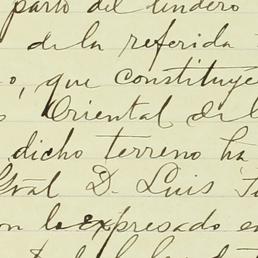 parto del lindero
de la referida
o, que constituye
Oriental del
dicho terreno ha
Gral D. Luis
on lo expresado en